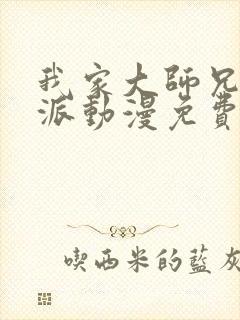 我家大師兄
派動漫免費
喫西米的藍灰